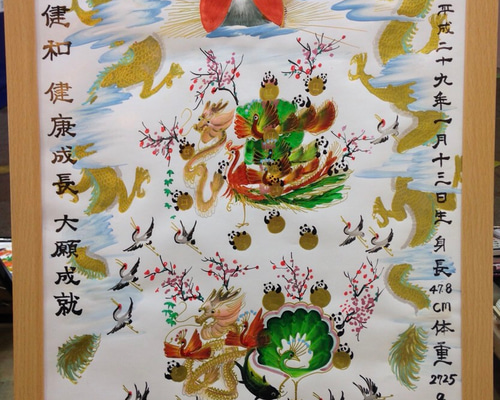 平成二十九年一月十三日生 身長 47.8 cm 体重 2725 g
健和 健康成長 大願成就